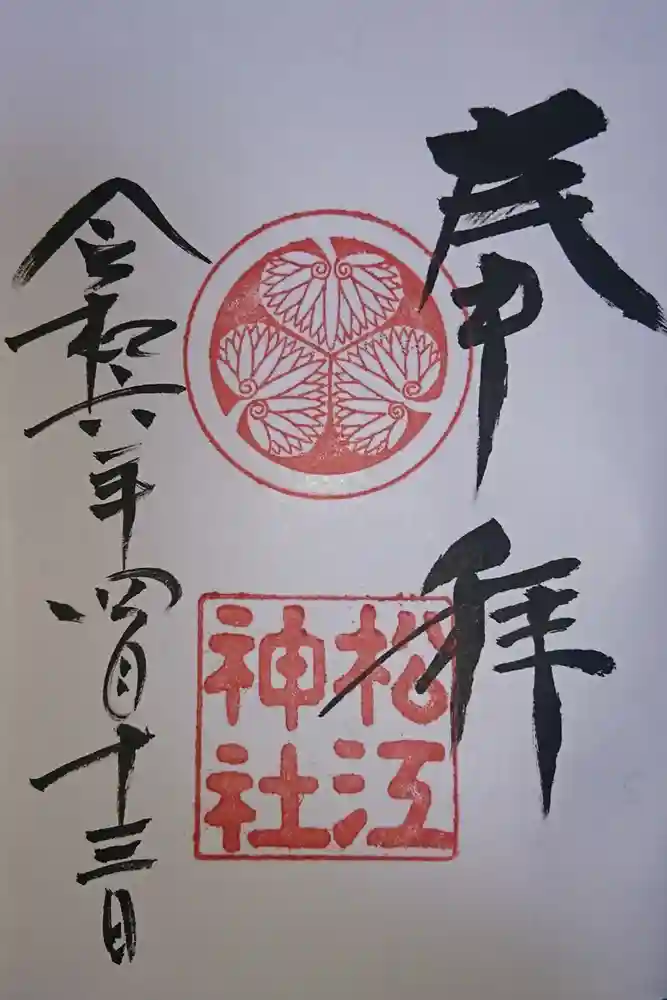 奉拝
松江
神社
令和六年四月十三日